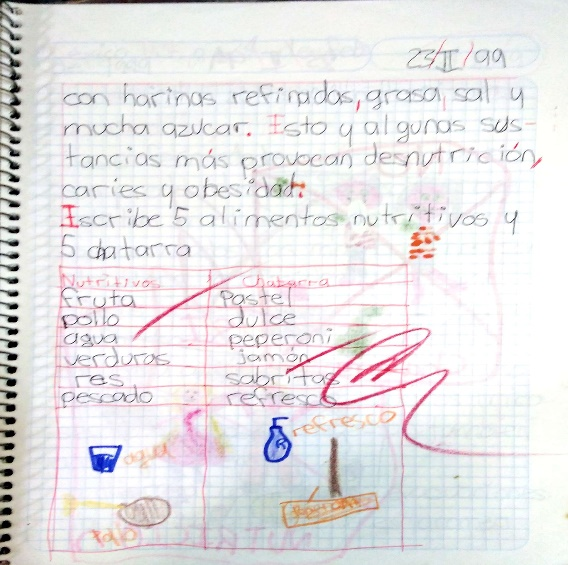 23/II/99
con harinas refinadas, grasa, sal y
mucha azucar. Esto y algunas sus-
tancias más provocan desnutrición,
caries y obesidad.
Escribe 5 alimentos nutritivos y
5 chatarra
Nutritivos Chatarra
fruta Pastel
pollo dulce
agua peperoni
verduras jamón
res sabritas
pescado refresco
agua refresco
Pollo